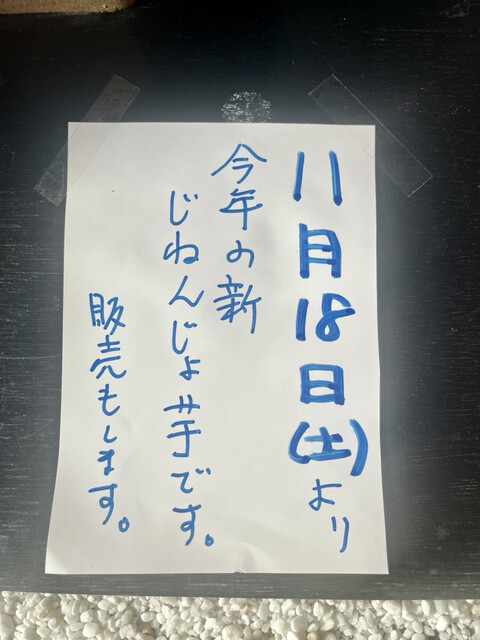 11月18日(土)より
今年の新
じねんじょ芋です。
販売もします。